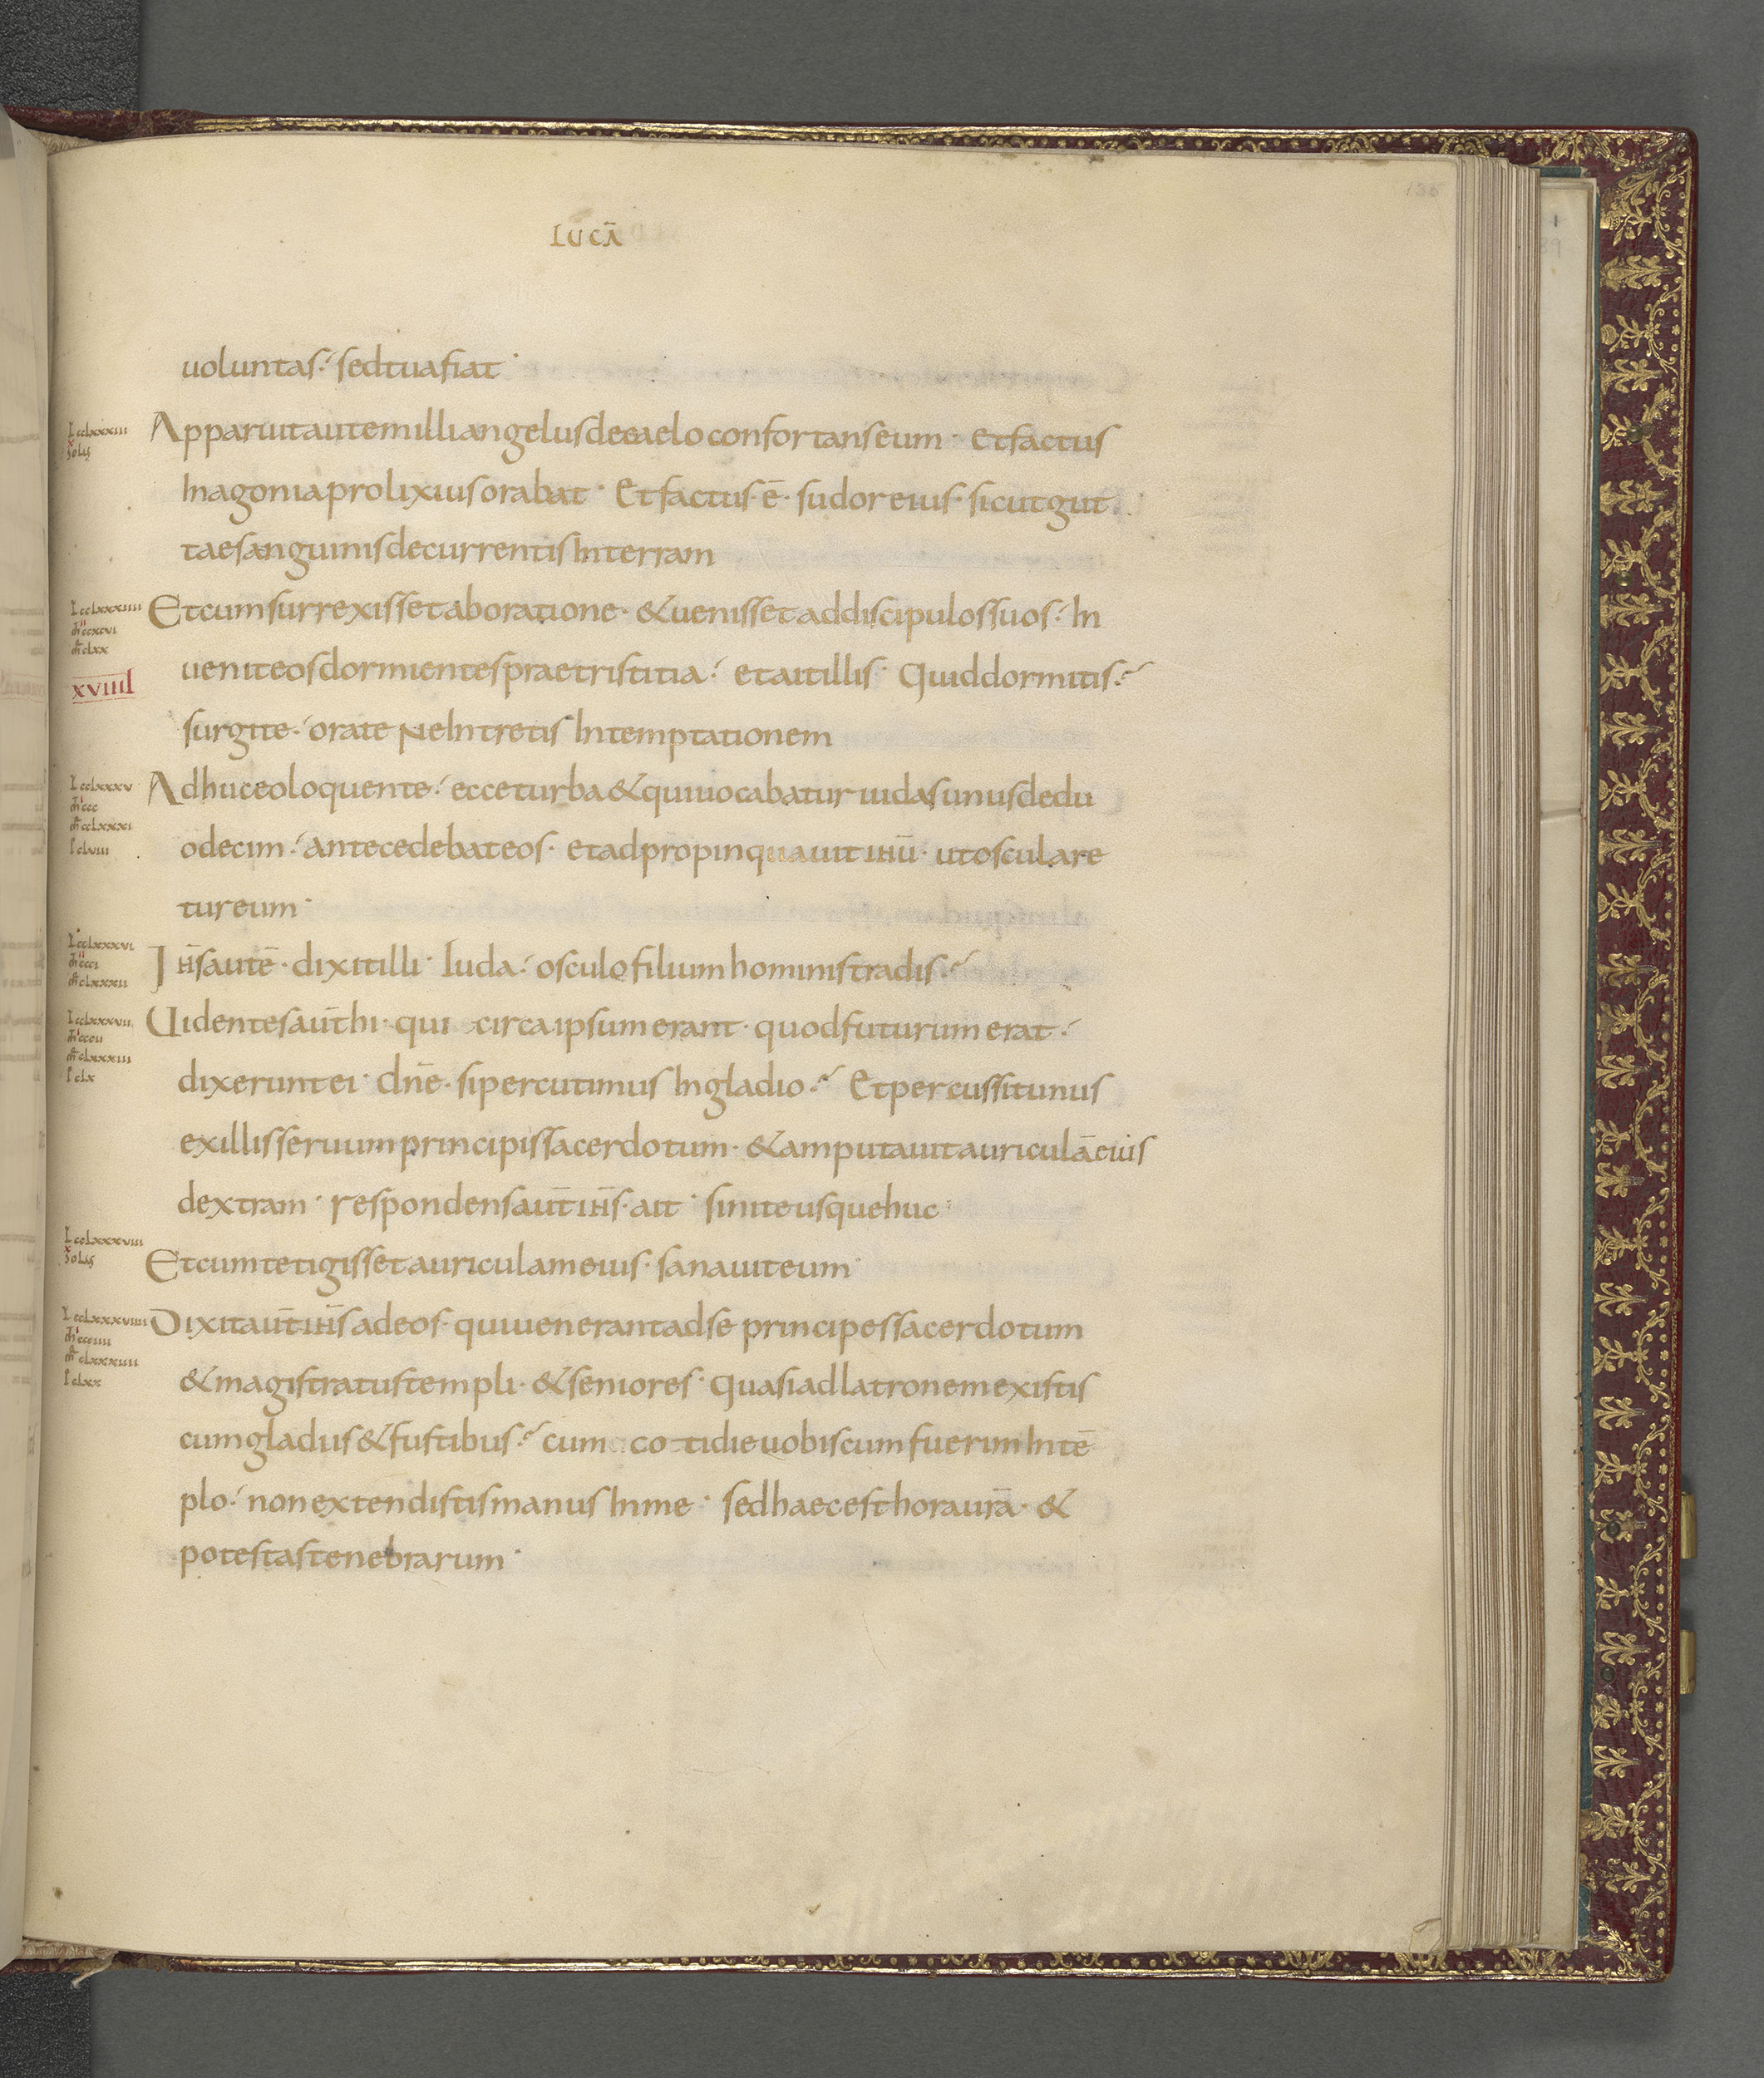 LUCĀ
uoluntas· sedtuafiat·
Apparuitautemilliangelusdecaeloconfortanseum· etfactus
Inagoniaprolixiusorabat· Etfactus·ē· sudoreius· sicutgut
taesanguinisdecurrentisInterram
lcclxxxiii
x
solus
Etcumsurrexissetaboratione· &uenissetaddiscipulossuos· In
ueniteosdormientespraetristitia· etaitillis· Quiddormitis·
surgite· orate NeIntretis Intemptationem
lcclxxxiiii
m̄ccxcvi
m̄clxx
xviiii
Adhuceoloquente· ecceturba&quiuocabaturiudasunusdedu
odecim· antecedebateos· etadpropinquauitihū· utosculare
tureum·
lcclxxxv
m̄ccc
m̄cclxxxi
Iclviii
Ihs̄autē· dixitilli· Iuda· osculofiliumhoministradis·
lcclxxxvi
m̄ccci
m̄clxxxii
Uidentesaut̄hi· qui circaipsumerant· quodfuturumerat·
dixeruntei· dn̄e· sipercutimus Ingladio· Etpercussitunus
exillisseruumprincipissacerdotum· &amputauitauriculāeius
dextram· respondensaut̄ihs̄· ait· siniteusquehuc·
lcclxxxvii
m̄cccii
m̄clxxxiii
Iclx
Etcumtetigissetauriculameius· sanauiteum·
lcclxxxviii
x
solus
Dixitaut̄ihs̄adeos· quiuenerantadse principessacerdotum
&magistratustempli· &seniores· quasiadlatronemexistis
cumgladiis&fustibus· cum cotidieuobiscumfuerimIntē
plo· nonextendistismanusInme· sedhaecesthoraur̄a· &
potestastenebrarum·
lcclxxxviiii
m̄ccciiii
m̄clxxxiiii
Iclxx